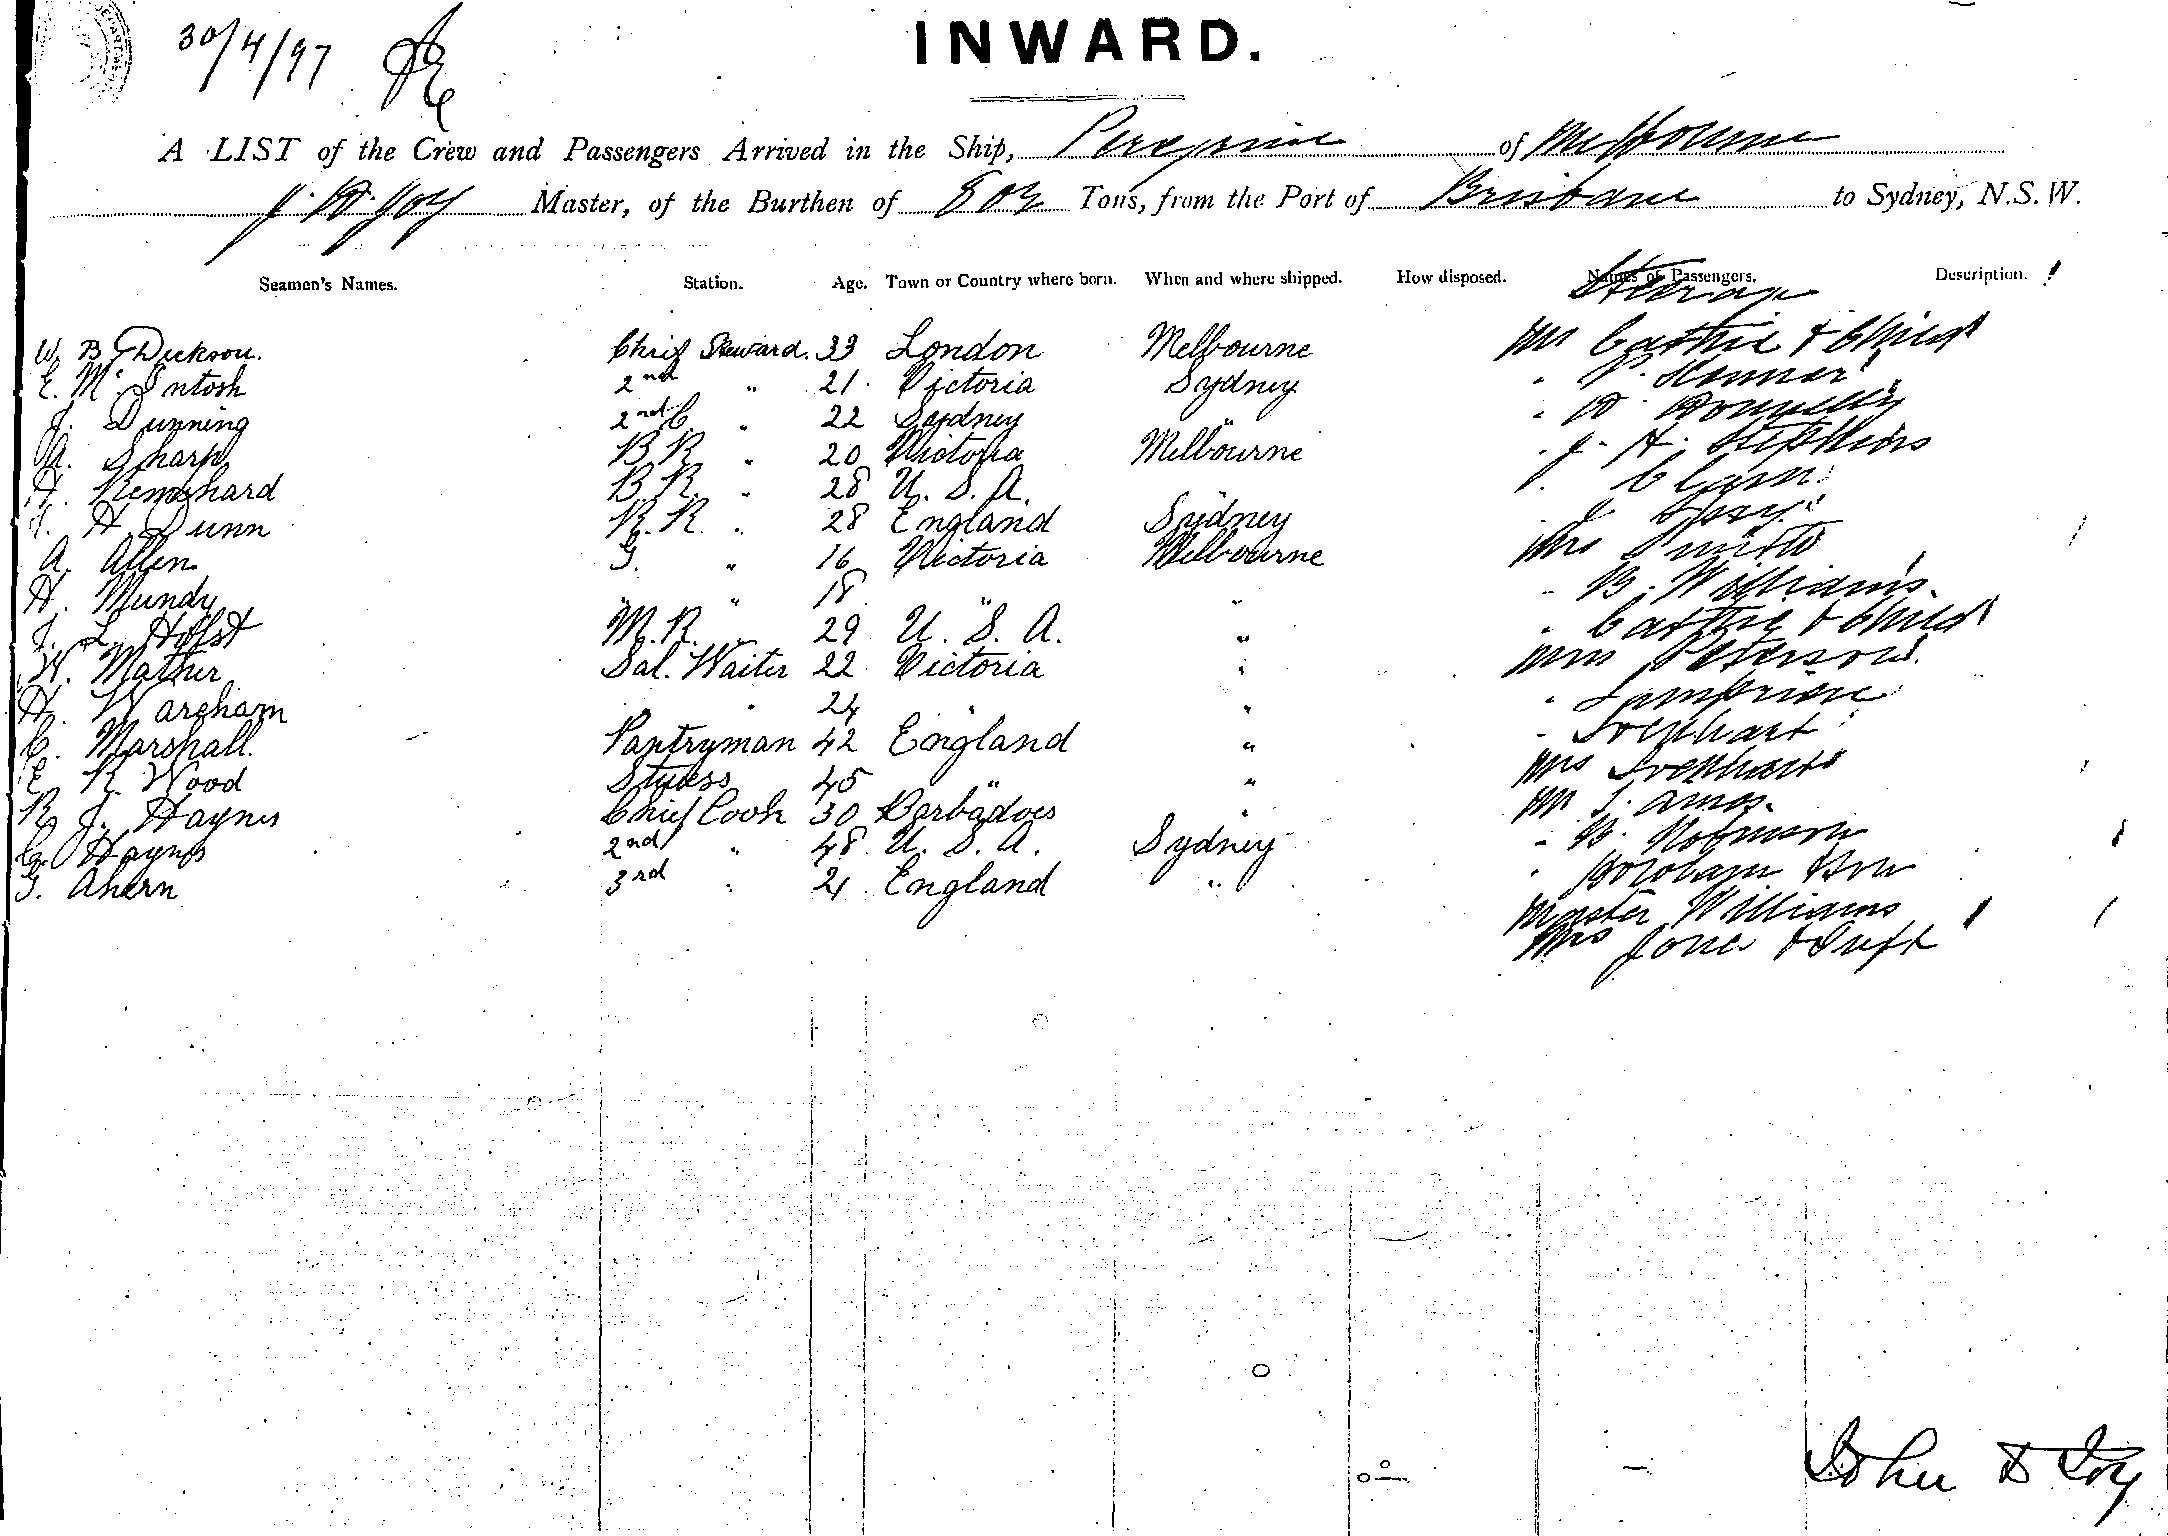 30/4/97
INWARD.
A LIST of the Crew and Passengers Arrived in the Ship, Peregrine of Melbourne
J. D. Joy Master, of the Burthen of Tons, from the Port of Brisbane to Sydney, N.S.W.
Seamen's Names. Station. Age. Town or Country where born. When and where shipped. How disposed. Names of Passengers. Description.
Steerage
W. B. Dickson. Chief Steward. 33 London Melbourne Mr & Child
E. McIntosh 2nd " 21 Victoria Sydney " P.
J. Dunning 2nd C. " 22 Sydney " " D. Donnelly
A. Sharp B.R. " 20 Victoria Melbourne " J. H. Stephens
H. B.R. " 28 U.S.A.
H. Dunn R.R. " 28 England Sydney
A. Allen G. " 16 Victoria Melbourne Mrs Smith
H. Mundy " " 18 " " " B. Williams
J. L. Holst M.R. " 29 U.S.A. " " & Child
W. Mather Sal. Waiter 22 Victoria " Miss Peterson
H. Wargham " " 24 " " "
C. Marshall. Pantryman 42 England " "
E. R. Wood Stwdss 45 " " Mrs
R. J. Haynes Chief Cook 30 Barbadoes " Mr Amos.
G. Haynes 2nd " 48 U.S.A. Sydney "
G. Ahern 3rd " 21 England " "
Master Williams
Mrs Jones &
John D Joy